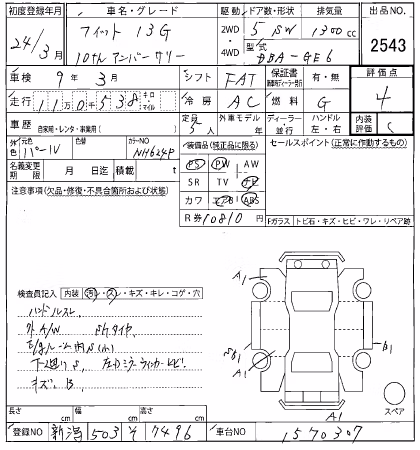 初度登録年月 車名・グレード 駆動 ドア数・形状 排気量 出品NO.
24/3月 フィット 13G 2WD・4WD 5 SW 1300cc 2543
10thアニバーサリー 型式 DBA-GE6
車検 9年3月 シフト FAT 保証書 有・無 評価点
走行 11万0千538 キロ マイル 冷房 AC 燃料 G 4
車歴 自家用・レンタ・事業用( ) 定員 5人 外車モデル年 ディーラー・並行 ハンドル 左・右 内装評価 C
外色 元色 パールV 色替 カラーNO NH624P 装備品(純正品に限る) セールスポイント(正常に作動するもの)
名義変更期限 月 日迄 積載 t PS PW AW
注意事項(欠品・修復・不具合箇所および状態) SR TV ナビ
カワ エアB ABS
R券 10810円 Fガラス トビ石・キズ・ヒビ・ワレ・リペア跡
A1
検査員記入 内装 汚・スレ・キズ・キレ・コゲ・穴
ハンドルスレ
外A/W
E/gルーム内S(小)
下廻りS 左ドアミラーウィンカーヒビ
キズ B
B1
A1
A1
スペア
長さ cm 幅 cm 高さ cm
登録NO 新潟 503 そ 7496 車台NO 1570307